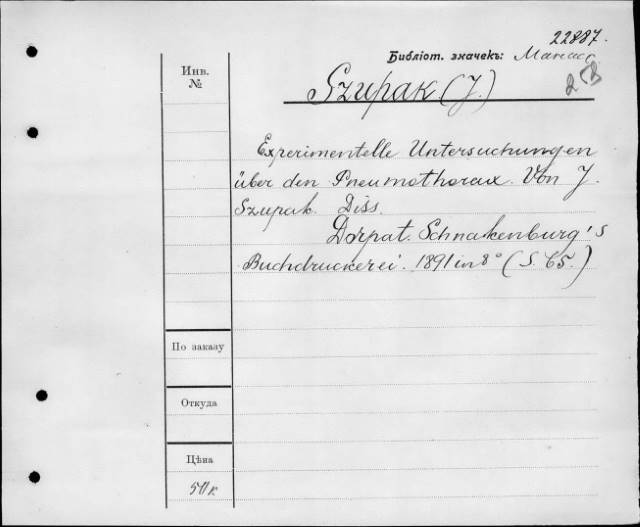 22887.
Библіот. значекъ:
Инв.
№
Szupak (J.)
Experimentelle Untersuchungen
über den Pneumothorax. Von J.
Szupak. Diss.
Dorpat. Schnakenburg's
Buchdruckerei. 1891 in 8° (S. 65.)
По заказу
Откуда
Цѣна
50 к